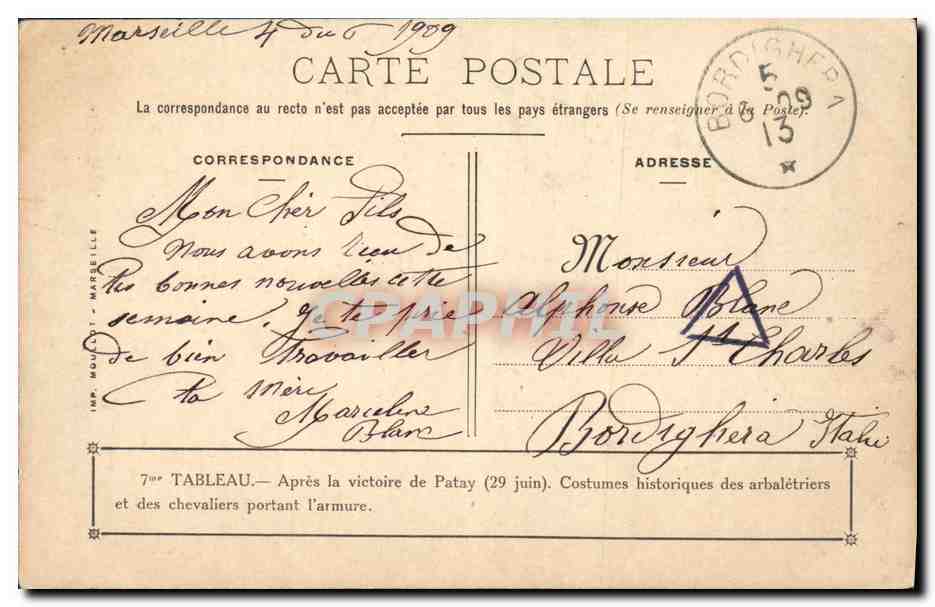 Marseille 4 du 6 1909
CARTE POSTALE
La correspondance au recto n'est pas acceptée par tous les pays étrangers (Se renseigner à la Poste).
BORDIGHERA
5
6 09
13
CORRESPONDANCE
Mon Cher Fils
Nous avons
bonnes nouvelles cette
semaine. Je te prie
de bien travailler
ta Mère
Marceline
Blanc
ADRESSE
Monsieur
Alphonse Blanc
Villa St Charles
Bordighera Italie
IMP. MOULLOT - MARSEILLE
CPAPHIL
7me TABLEAU.— Après la victoire de Patay (29 juin). Costumes historiques des arbalétriers
et des chevaliers portant l'armure.